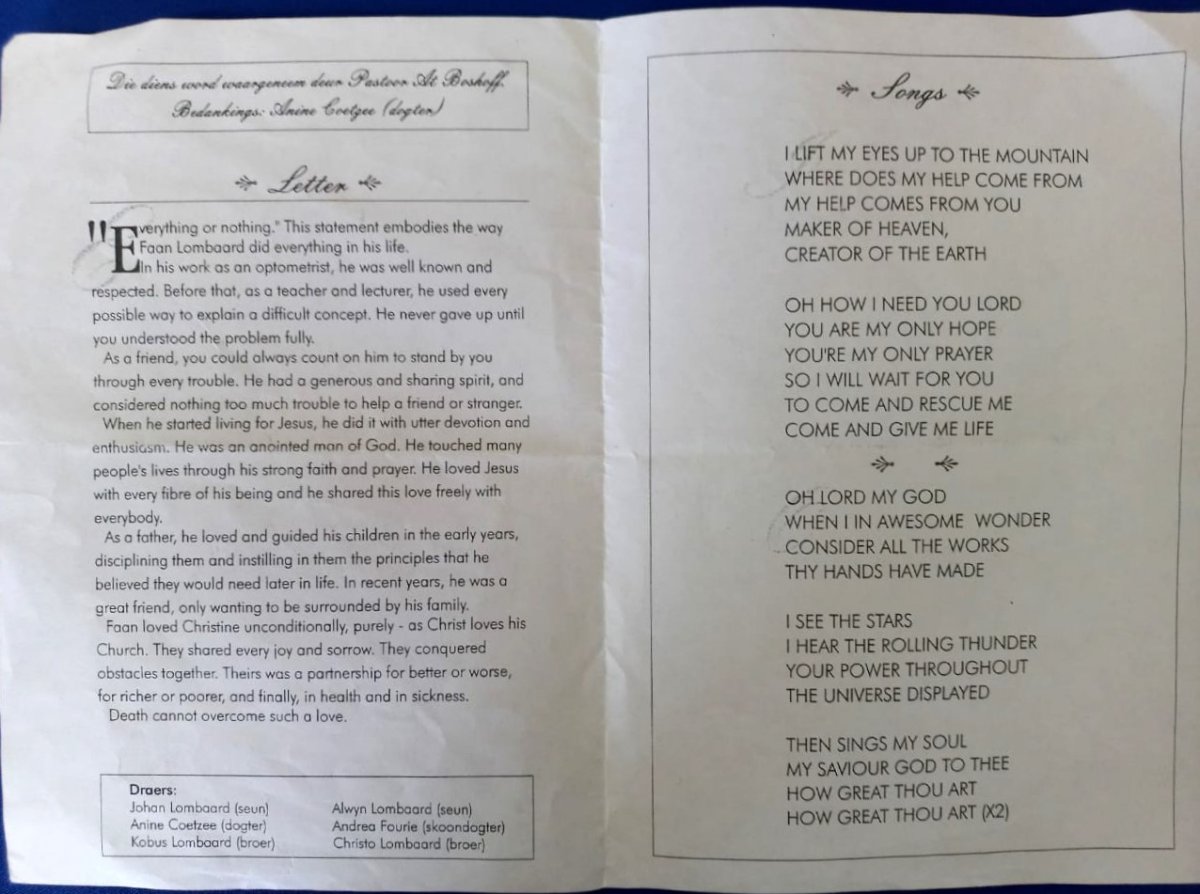 Die diens word waargeneem deur Pastoor At Boshoff.
Bedankings: Anine Coetzee (dogter)
Letter
"Everything or nothing." This statement embodies the way
Faan Lombaard did everything in his life.
In his work as an optometrist, he was well known and
respected. Before that, as a teacher and lecturer, he used every
possible way to explain a difficult concept. He never gave up until
you understood the problem fully.
As a friend, you could always count on him to stand by you
through every trouble. He had a generous and sharing spirit, and
considered nothing too much trouble to help a friend or stranger.
When he started living for Jesus, he did it with utter devotion and
enthusiasm. He was an anointed man of God. He touched many
people's lives through his strong faith and prayer. He loved Jesus
with every fibre of his being and he shared this love freely with
everybody.
As a father, he loved and guided his children in the early years,
disciplining them and instilling in them the principles that he
believed they would need later in life. In recent years, he was a
great friend, only wanting to be surrounded by his family.
Faan loved Christine unconditionally, purely - as Christ loves his
Church. They shared every joy and sorrow. They conquered
obstacles together. Theirs was a partnership for better or worse,
for richer or poorer, and finally, in health and in sickness.
Death cannot overcome such a love.
Draers:
Johan Lombaard (seun) Alwyn Lombaard (seun)
Anine Coetzee (dogter) Andrea Fourie (skoondogter)
Kobus Lombaard (broer) Christo Lombaard (broer)
Songs
I LIFT MY EYES UP TO THE MOUNTAIN
WHERE DOES MY HELP COME FROM
MY HELP COMES FROM YOU
MAKER OF HEAVEN,
CREATOR OF THE EARTH
OH HOW I NEED YOU LORD
YOU ARE MY ONLY HOPE
YOU'RE MY ONLY PRAYER
SO I WILL WAIT FOR YOU
TO COME AND RESCUE ME
COME AND GIVE ME LIFE
OH LORD MY GOD
WHEN I IN AWESOME WONDER
CONSIDER ALL THE WORKS
THY HANDS HAVE MADE
I SEE THE STARS
I HEAR THE ROLLING THUNDER
YOUR POWER THROUGHOUT
THE UNIVERSE DISPLAYED
THEN SINGS MY SOUL
MY SAVIOUR GOD TO THEE
HOW GREAT THOU ART
HOW GREAT THOU ART (X2)